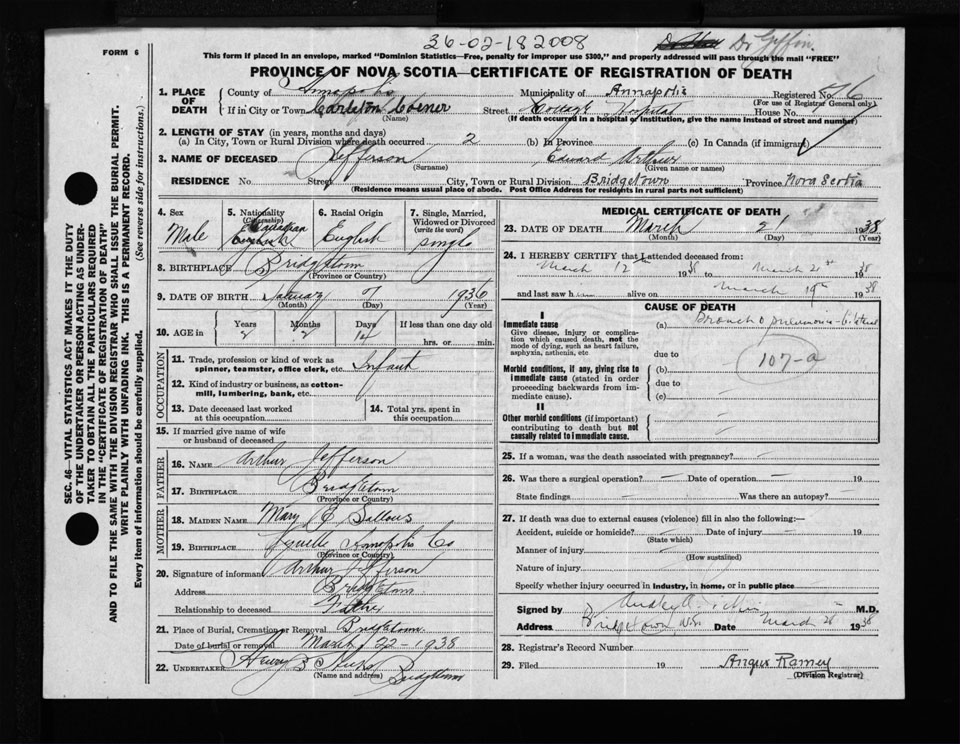 FORM 6
36-02-182008
Dr Giffin.
This form if placed in an envelope, marked "Dominion Statistics—Free, penalty for improper use $300," and properly addressed will pass through the mail "FREE"
PROVINCE OF NOVA SCOTIA—CERTIFICATE OF REGISTRATION OF DEATH
1. PLACE OF DEATH
County of Annapolis Municipality of Annapolis Registered No. 76
(For use of Registrar General only)
If in City or Town Carleton Corner Street Cottage Hospital House No.
(Name) (If death occurred in a hospital or institution, give the name instead of street and number)
2. LENGTH OF STAY (in years, months and days)
(a) In City, Town or Rural Division where death occurred 2 (b) In Province (c) In Canada (if immigrant)
3. NAME OF DECEASED Jefferson Edward Arthur
(Surname) (Given name or names)
RESIDENCE No. Street City, Town or Rural Division Bridgetown Province Nova Scotia
(Residence means usual place of abode. Post Office Address for residents in rural parts not sufficient)
4. Sex
Male
5. Nationality
(Citizenship)
Canadian
English
6. Racial Origin
English
7. Single, Married, Widowed or Divorced
(write the word)
single
8. BIRTHPLACE Bridgetown
(Province or Country)
9. DATE OF BIRTH January 7 1936
(Month) (Day) (Year)
10. AGE in
Years Months Days If less than one day old
2 2 14 hrs. or min.
OCCUPATION
11. Trade, profession or kind of work as spinner, teamster, office clerk, etc. Infant
12. Kind of industry or business, as cotton-mill, lumbering, bank, etc.
13. Date deceased last worked at this occupation
14. Total yrs. spent in this occupation
15. If married give name of wife or husband of deceased
FATHER
16. NAME Arthur Jefferson
17. BIRTHPLACE Bridgetown
(Province or Country)
MOTHER
18. MAIDEN NAME Mary
19. BIRTHPLACE Annapolis Co
(Province or Country)
20. Signature of informant Arthur Jefferson
Address Bridgetown
Relationship to deceased Father
21. Place of Burial, Cremation or Removal Bridgetown
Date of burial or removal March 22 - 1938
22. UNDERTAKER Henry B Hicks
(Name and address) Bridgetown
MEDICAL CERTIFICATE OF DEATH
23. DATE OF DEATH March 21 1938
(Month) (Day) (Year)
24. I HEREBY CERTIFY that I attended deceased from:
March 12th 1938 to March 21st 1938
and last saw him alive on March 19th 1938
CAUSE OF DEATH
I
Immediate cause
Give disease, injury or complication which caused death, not the mode of dying, such as heart failure, asphyxia, asthenia, etc
(a) Broncho pneumonia - bilateral
due to
107-a
Morbid conditions, if any, giving rise to immediate cause (stated in order proceeding backwards from immediate cause).
(b)
due to
(c)
II
Other morbid conditions (if important) contributing to death but not causally related to immediate cause.
25. If a woman, was the death associated with pregnancy?
26. Was there a surgical operation? Date of operation 19
State findings Was there an autopsy?
27. If death was due to external causes (violence) fill in also the following:—
Accident, suicide or homicide? Date of injury 19
(State which)
Manner of injury
(How sustained)
Nature of injury
Specify whether injury occurred in industry, in home, or in public place
Signed by M.D.
Address Bridgetown N.S. Date March 1938
28. Registrar's Record Number
29. Filed 19 Angus Ramey
(Division Registrar)
SEC. 46—VITAL STATISTICS ACT MAKES IT THE DUTY
OF THE UNDERTAKER OR PERSON ACTING AS UNDER-
TAKER TO OBTAIN ALL THE PARTICULARS REQUIRED
IN THE "CERTIFICATE OF REGISTRATION OF DEATH"
AND TO FILE THE SAME WITH THE DIVISION REGISTRAR WHO SHALL ISSUE THE BURIAL PERMIT.
WRITE PLAINLY WITH UNFADING INK. THIS IS A PERMANENT RECORD.
Every item of information should be carefully supplied. (See reverse side for instructions.)